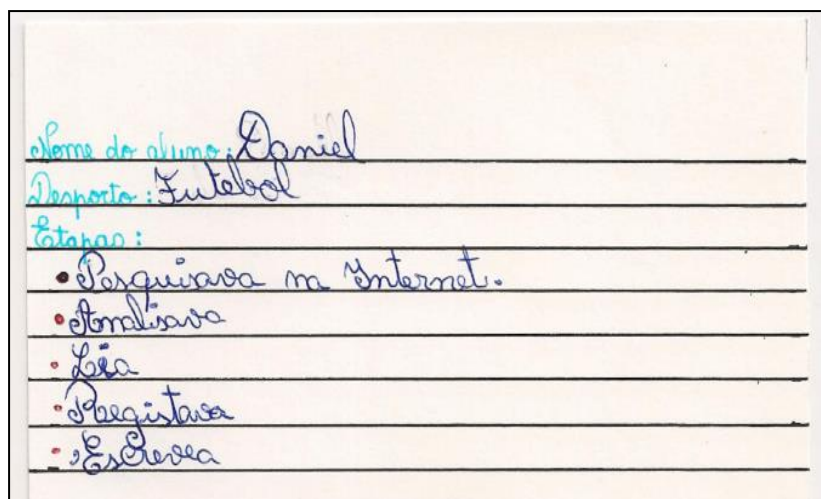 Nome do aluno: Daniel
Desporto: Futebol
Etapas:
• Pesquisava na Internet.
• Analisava
• Lia
• Registava
• Escrevia